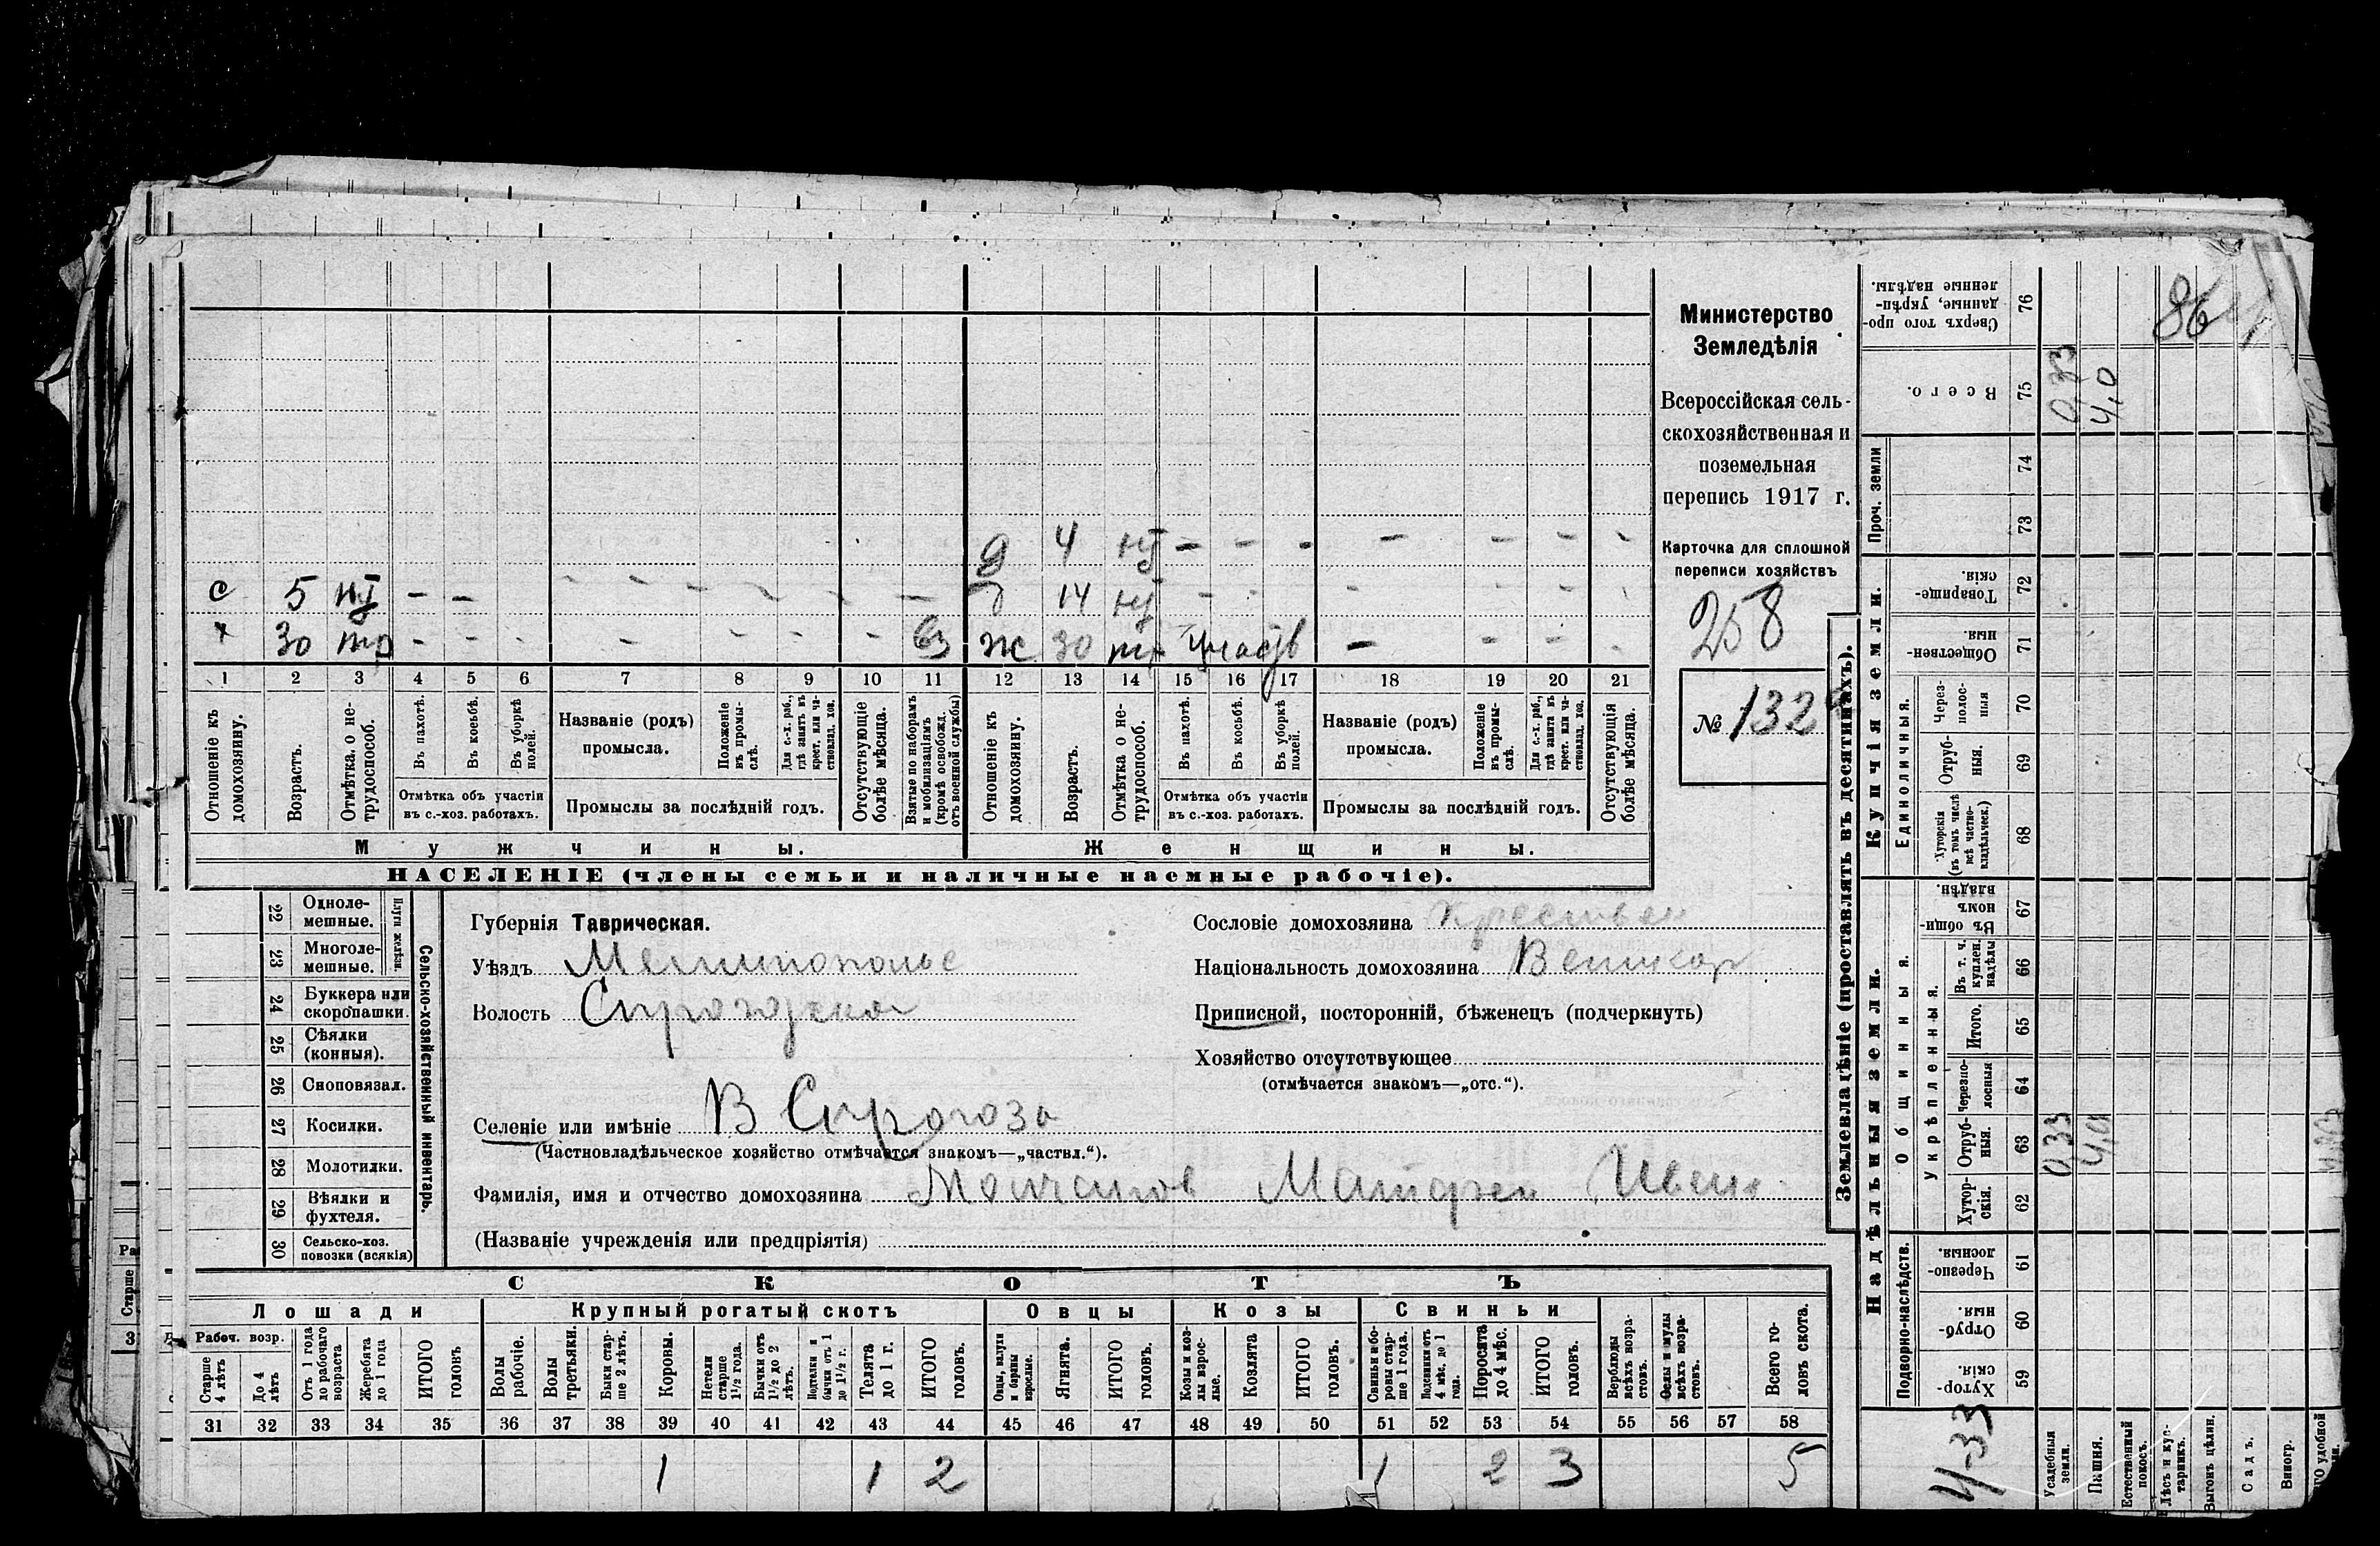 д 4 нт - - - - - - -
с 5 нт - - - - - - - - д 14 нт - - - - - -
х 30 тр - - - - - - - вз ж 30 тр участв - - - -
1 2 3 4 5 6 7 8 9 10 11 12 13 14 15 16 17 18 19 20 21
Отношеніе къ домохозяину.
Возрастъ.
Отмѣтка о не-трудоспособ.
Въ пахотѣ.
Въ косьбѣ.
Въ уборкѣ полей.
Отмѣтка объ участіи
въ с.-хоз. работахъ.
Названіе (родъ)
промысла.
Положеніе въ промы-слѣ.
Для с.-х. раб., гдѣ занятъ въ крест. или ча-стновлад. хоз.
Промыслы за послѣдній годъ.
Отсутствующіе болѣе мѣсяца.
Взятые по наборамъ и мобилизаціямъ (кромѣ освобожд. отъ военной службы)
Отношеніе къ домохозяину.
Возрастъ.
Отмѣтка о не-трудоспособ.
Въ пахотѣ.
Въ косьбѣ.
Въ уборкѣ полей.
Отмѣтка объ участіи
въ с.-хоз. работахъ.
Названіе (родъ)
промысла.
Положеніе въ промы-слѣ.
Для с.-х. раб., гдѣ занята въ крест. или ча-стновлад. хоз.
Промыслы за послѣдній годъ.
Отсутствующія болѣе мѣсяца.
Мужчины. Женщины.
НАСЕЛЕНІЕ (члены семьи и наличные наемные рабочіе).
Министерство
Земледѣлія
Всероссійская сель-
скохозяйственная и
поземельная
перепись 1917 г.
Карточка для сплошной
переписи хозяйствъ
258
№ 132
22 Однолемешные.
23 Многолемешные.
Плуги желѣзн.
24 Буккера или скоропашки.
25 Сѣялки (конныя).
26 Сноповязал.
27 Косилки.
28 Молотилки.
29 Вѣялки и фухтеля.
30 Сельско-хоз. повозки (всякія)
Сельско-хозяйственный инвентарь.
Губернія Таврическая.
Уѣздъ Мелитополье
Волость
Селеніе или имѣніе В
(Частновладѣльческое хозяйство отмѣчается знакомъ—„частвл.“).
Фамилія, имя и отчество домохозяина Молчанов
(Названіе учрежденія или предпріятія)
Сословіе домохозяина
Національность домохозяина Великор
Приписной, посторонній, бѣженецъ (подчеркнуть)
Хозяйство отсутствующее
(отмѣчается знакомъ—„отс.“).
СКОТЪ
Лошади Крупный рогатый скотъ Овцы Козы Свиньи
Рабоч. возр.
Старше 4 лѣтъ
До 4 лѣтъ
Отъ 1 года до рабочаго возраста
Жеребята до 1 года
ИТОГО головъ
Волы рабочіе.
Волы третьяки.
Быки стар-ше 2 лѣтъ.
Коровы.
Нетели старше 1½ года.
Бычки отъ 1½ до 2 лѣтъ.
Подтелки и бычки отъ 1 до 1½ г.
Телята до 1 г.
ИТОГО головъ.
Овцы, валухи и бараны взрослые.
Ягнята.
ИТОГО головъ.
Козы и коз-лы взрос-лые.
Козлята
ИТОГО головъ.
Свиньи и бо-ровы стар-ше 1 года.
Подсвинки отъ 4 мѣс. до 1 года.
Поросята до 4 мѣс.
ИТОГО головъ.
Верблюды всѣхъ возра-стовъ.
Ослы и мулы всѣхъ возра-стовъ.
Всего го-ловъ скота.
31 32 33 34 35 36 37 38 39 40 41 42 43 44 45 46 47 48 49 50 51 52 53 54 55 56 57 58
1 1 2 1 2 3 5
Землевладѣніе (проставлять въ десятинахъ).
Купчія земли.
Надѣльныя земли.
Проч. земли
Единоличныя.
Общинныя.
Укрѣпленныя.
Подворно-наслѣдств.
Сверхъ того про-данные, укрѣп-ленные надѣлы. 76
Всего. 75 0,33 4,0
74
73
Товарище-скія. 72
Обществен-ныя. 71
Через-полос-ныя 70
Отруб-ныя. 69
Хуторскія (въ томъ числѣ всѣ частно-владѣльческ.) 68
Въ общи-номъ владѣн. 67
Въ т. ч. куплен. надѣлы 66
Итого. 65
Черезпо-лосныя 64
Отруб-ныя. 63 0,33 4,0
Хутор-скія. 62
Черезпо-лосныя. 61
Отруб-ныя. 60
Хутор-скія. 59
4-33
Усадебныя земли.
Пашня.
Естественный покосъ.
Лѣсъ и кус-тарникъ.
Выгонъ цѣлин.
Садъ.
Виногр.
86